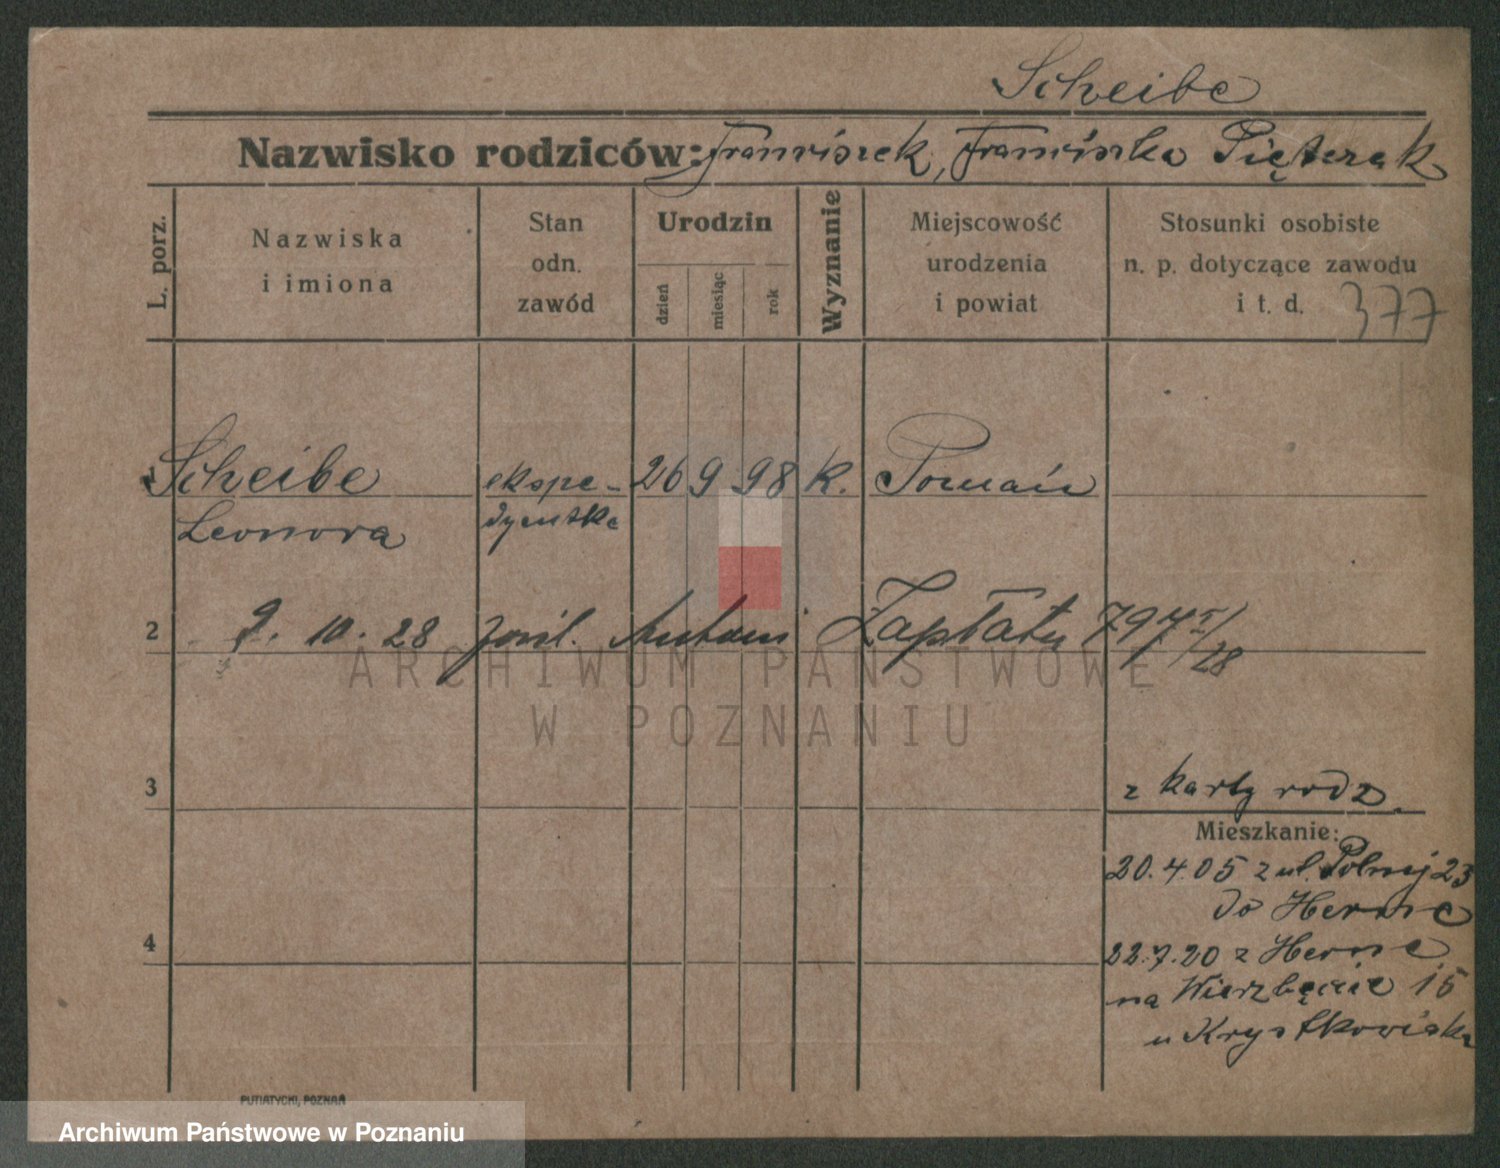 Scheibe
Nazwisko rodziców: Franciszek, Franciszka Piętrzak
L. porz.
Nazwiska
i imiona
Stan
odn.
zawód
Urodzin
dzień
miesiąc
rok
Wyznanie
Miejscowość
urodzenia
i powiat
Stosunki osobiste
n. p. dotyczące zawodu
i t. d.
377
Scheibe ekspe- 26 9 98 k. Poznań
Leonora dyentka
2 9. 10. 28 Antoni Zapłata 797
28
ARCHIWUM PAŃSTWOWE
W POZNANIU
3
z karty rodz.
Mieszkanie:
20.4.05 z ul. Polnej 23
do Herne
4
22.7.20 z Herne
na Wierzbięcie 15
u Krystkowiaka
PUTIATYCKI, POZNAŃ
Archiwum Państwowe w Poznaniu